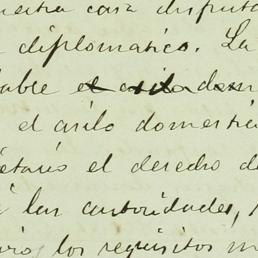 nuestra casa disfruta
diplomático. La
able el asilo dom
el asilo domésti
etario el derecho de
á las autoridades,
los requisitos m